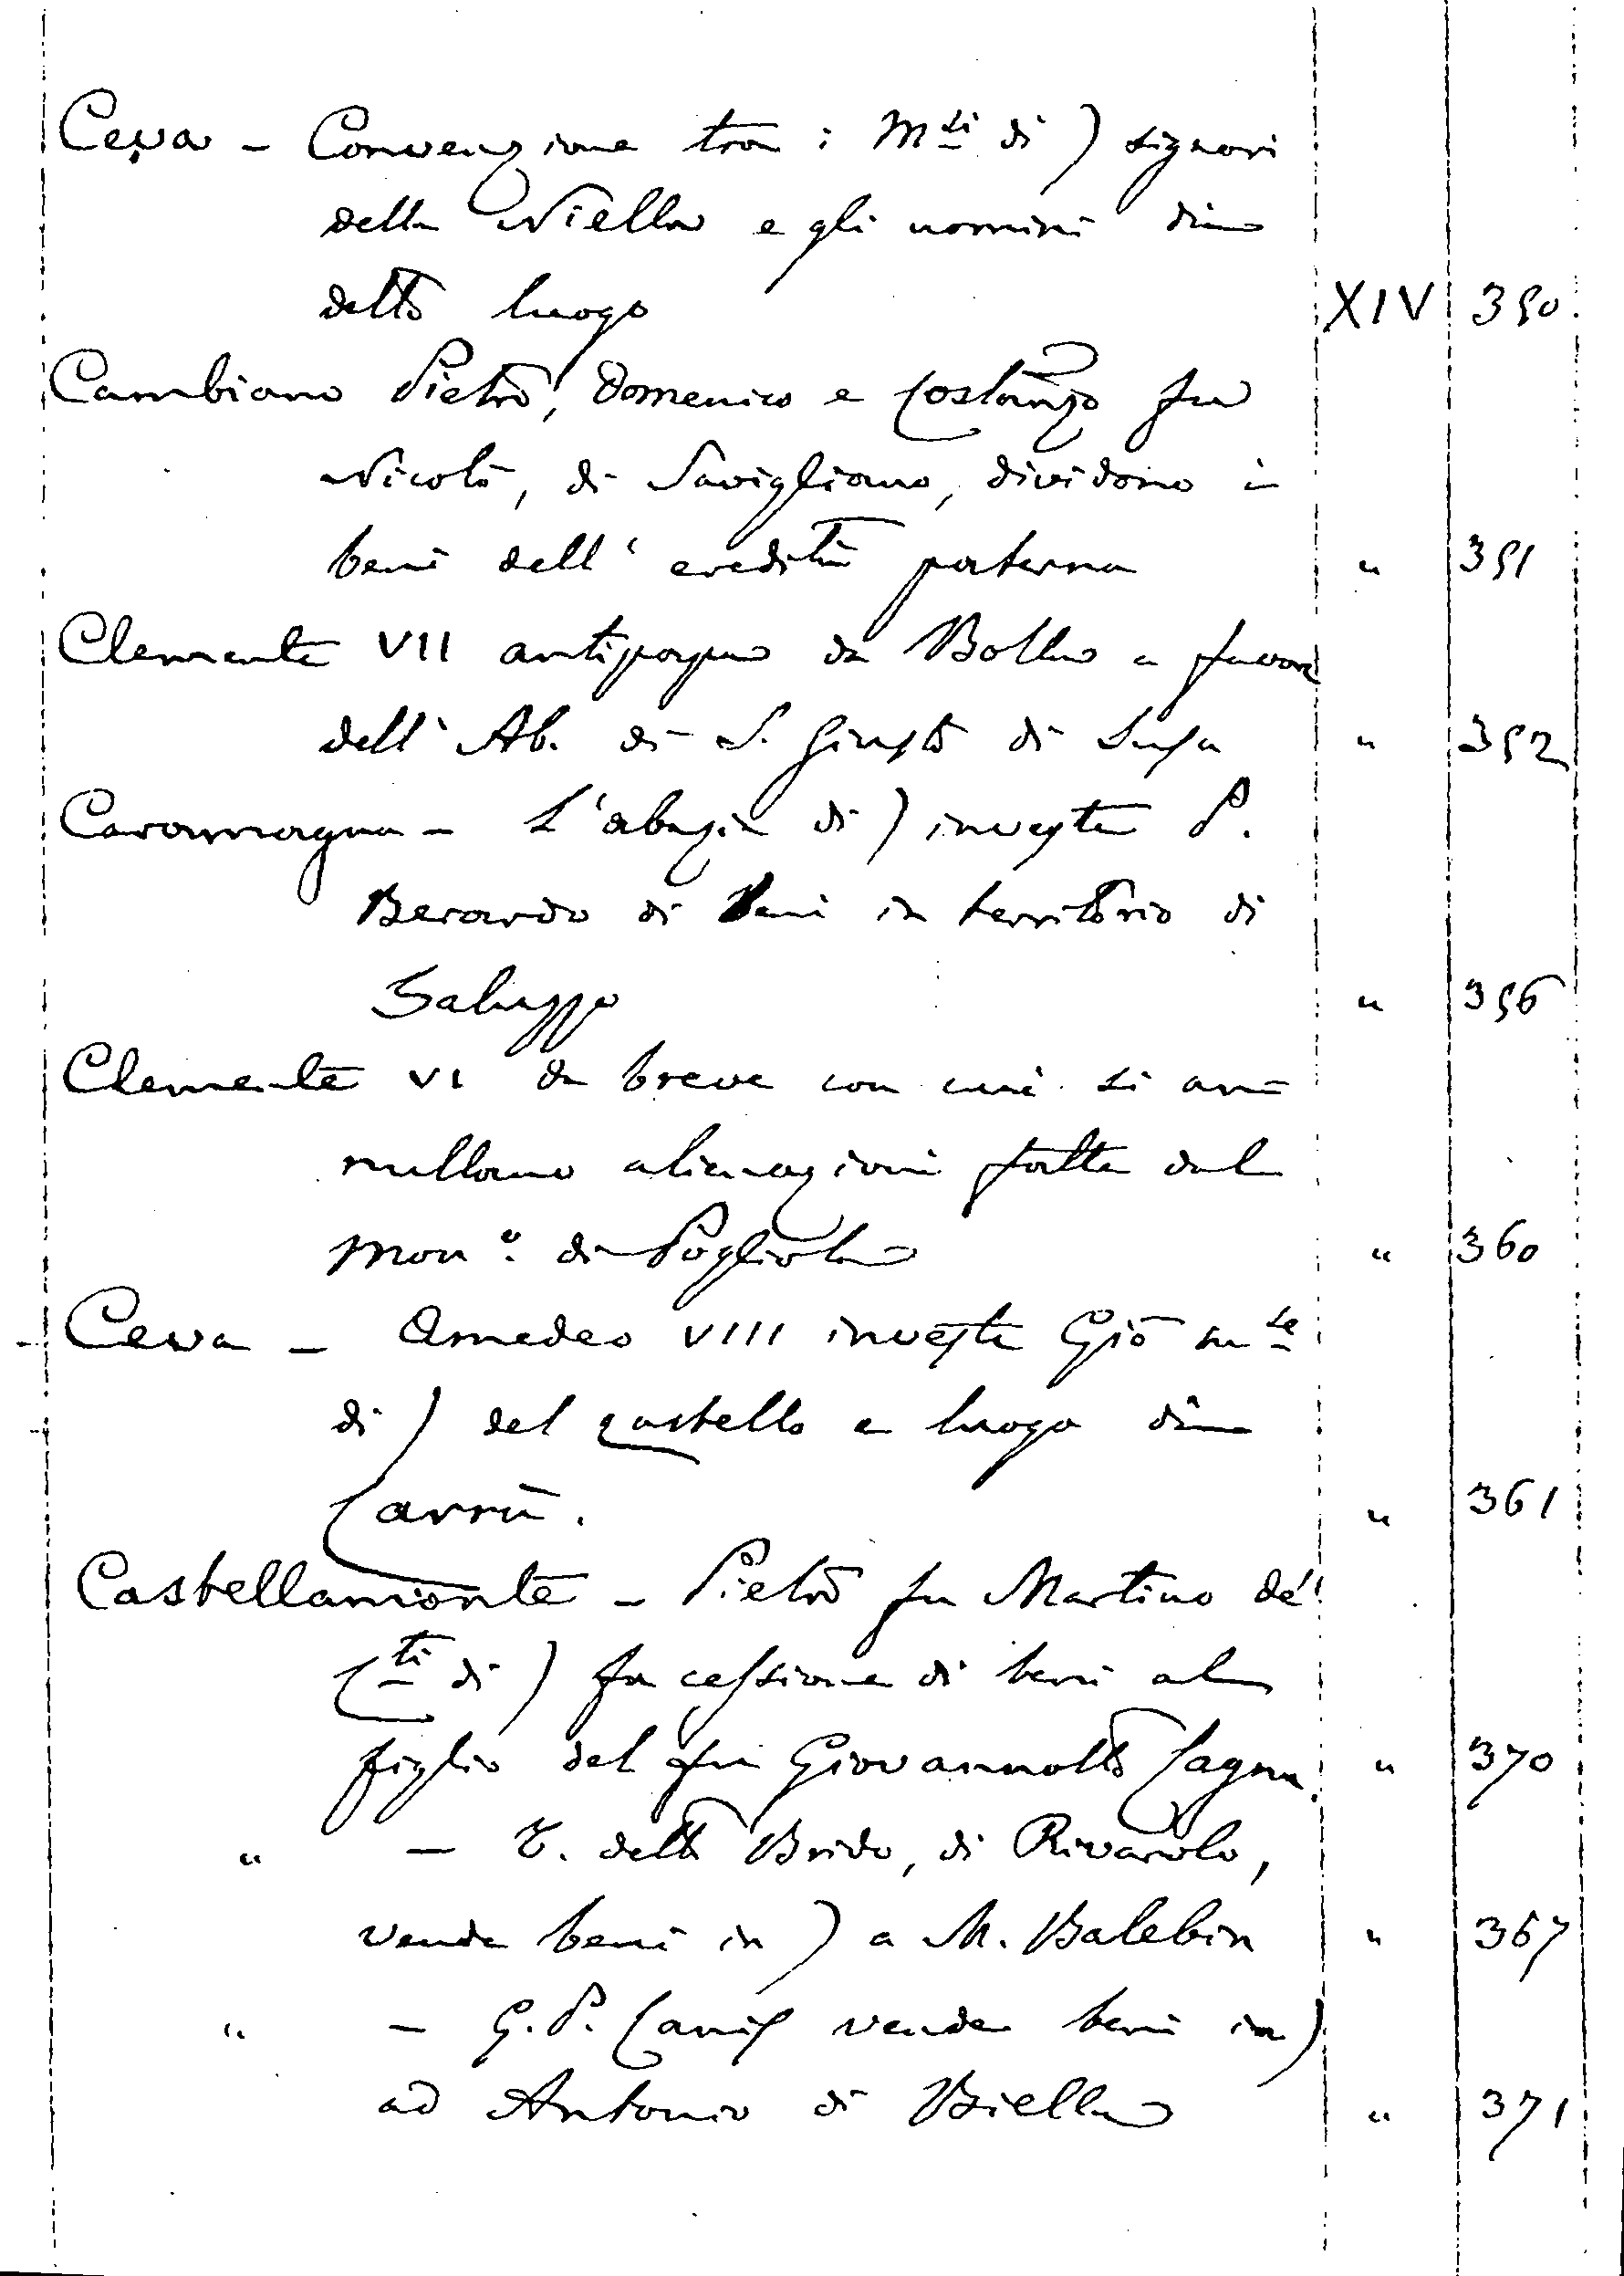 Ceva - Convenzione tra i M.si di) signori
della Niella e gli uomini di
detto luogo XIV 350
Cambiano Pietro, Domenico e Costanzo fu
Nicolò, di Savigliano, dividono i
beni dell'eredità paterna " 351
Clemente VII antipapa dà Bolla a favore
dell'Ab. di S. Giusto di Susa " 352
Caramagna - L'abazia di) investe P.
Berardo di beni in territorio di
Saluzzo " 356
Clemente VI dà breve con cui si an=
nullano alienazioni fatte dal
Mon.o di Pogliola " 360
Ceva - Amedeo VIII investe Giò m.se
di) del castello e luogo di
Carrù. " 361
Castellamonte - Pietro fu Martino de'
C.ti di) fa cessione di beni al
figlio del fu Giovannotto Cagna " 370
" - T. detto Brido, di Rivarolo,
vende beni in) a M. Balebin " 367
" - G. P. Canis vende beni in)
ad Antonio di Biella " 371